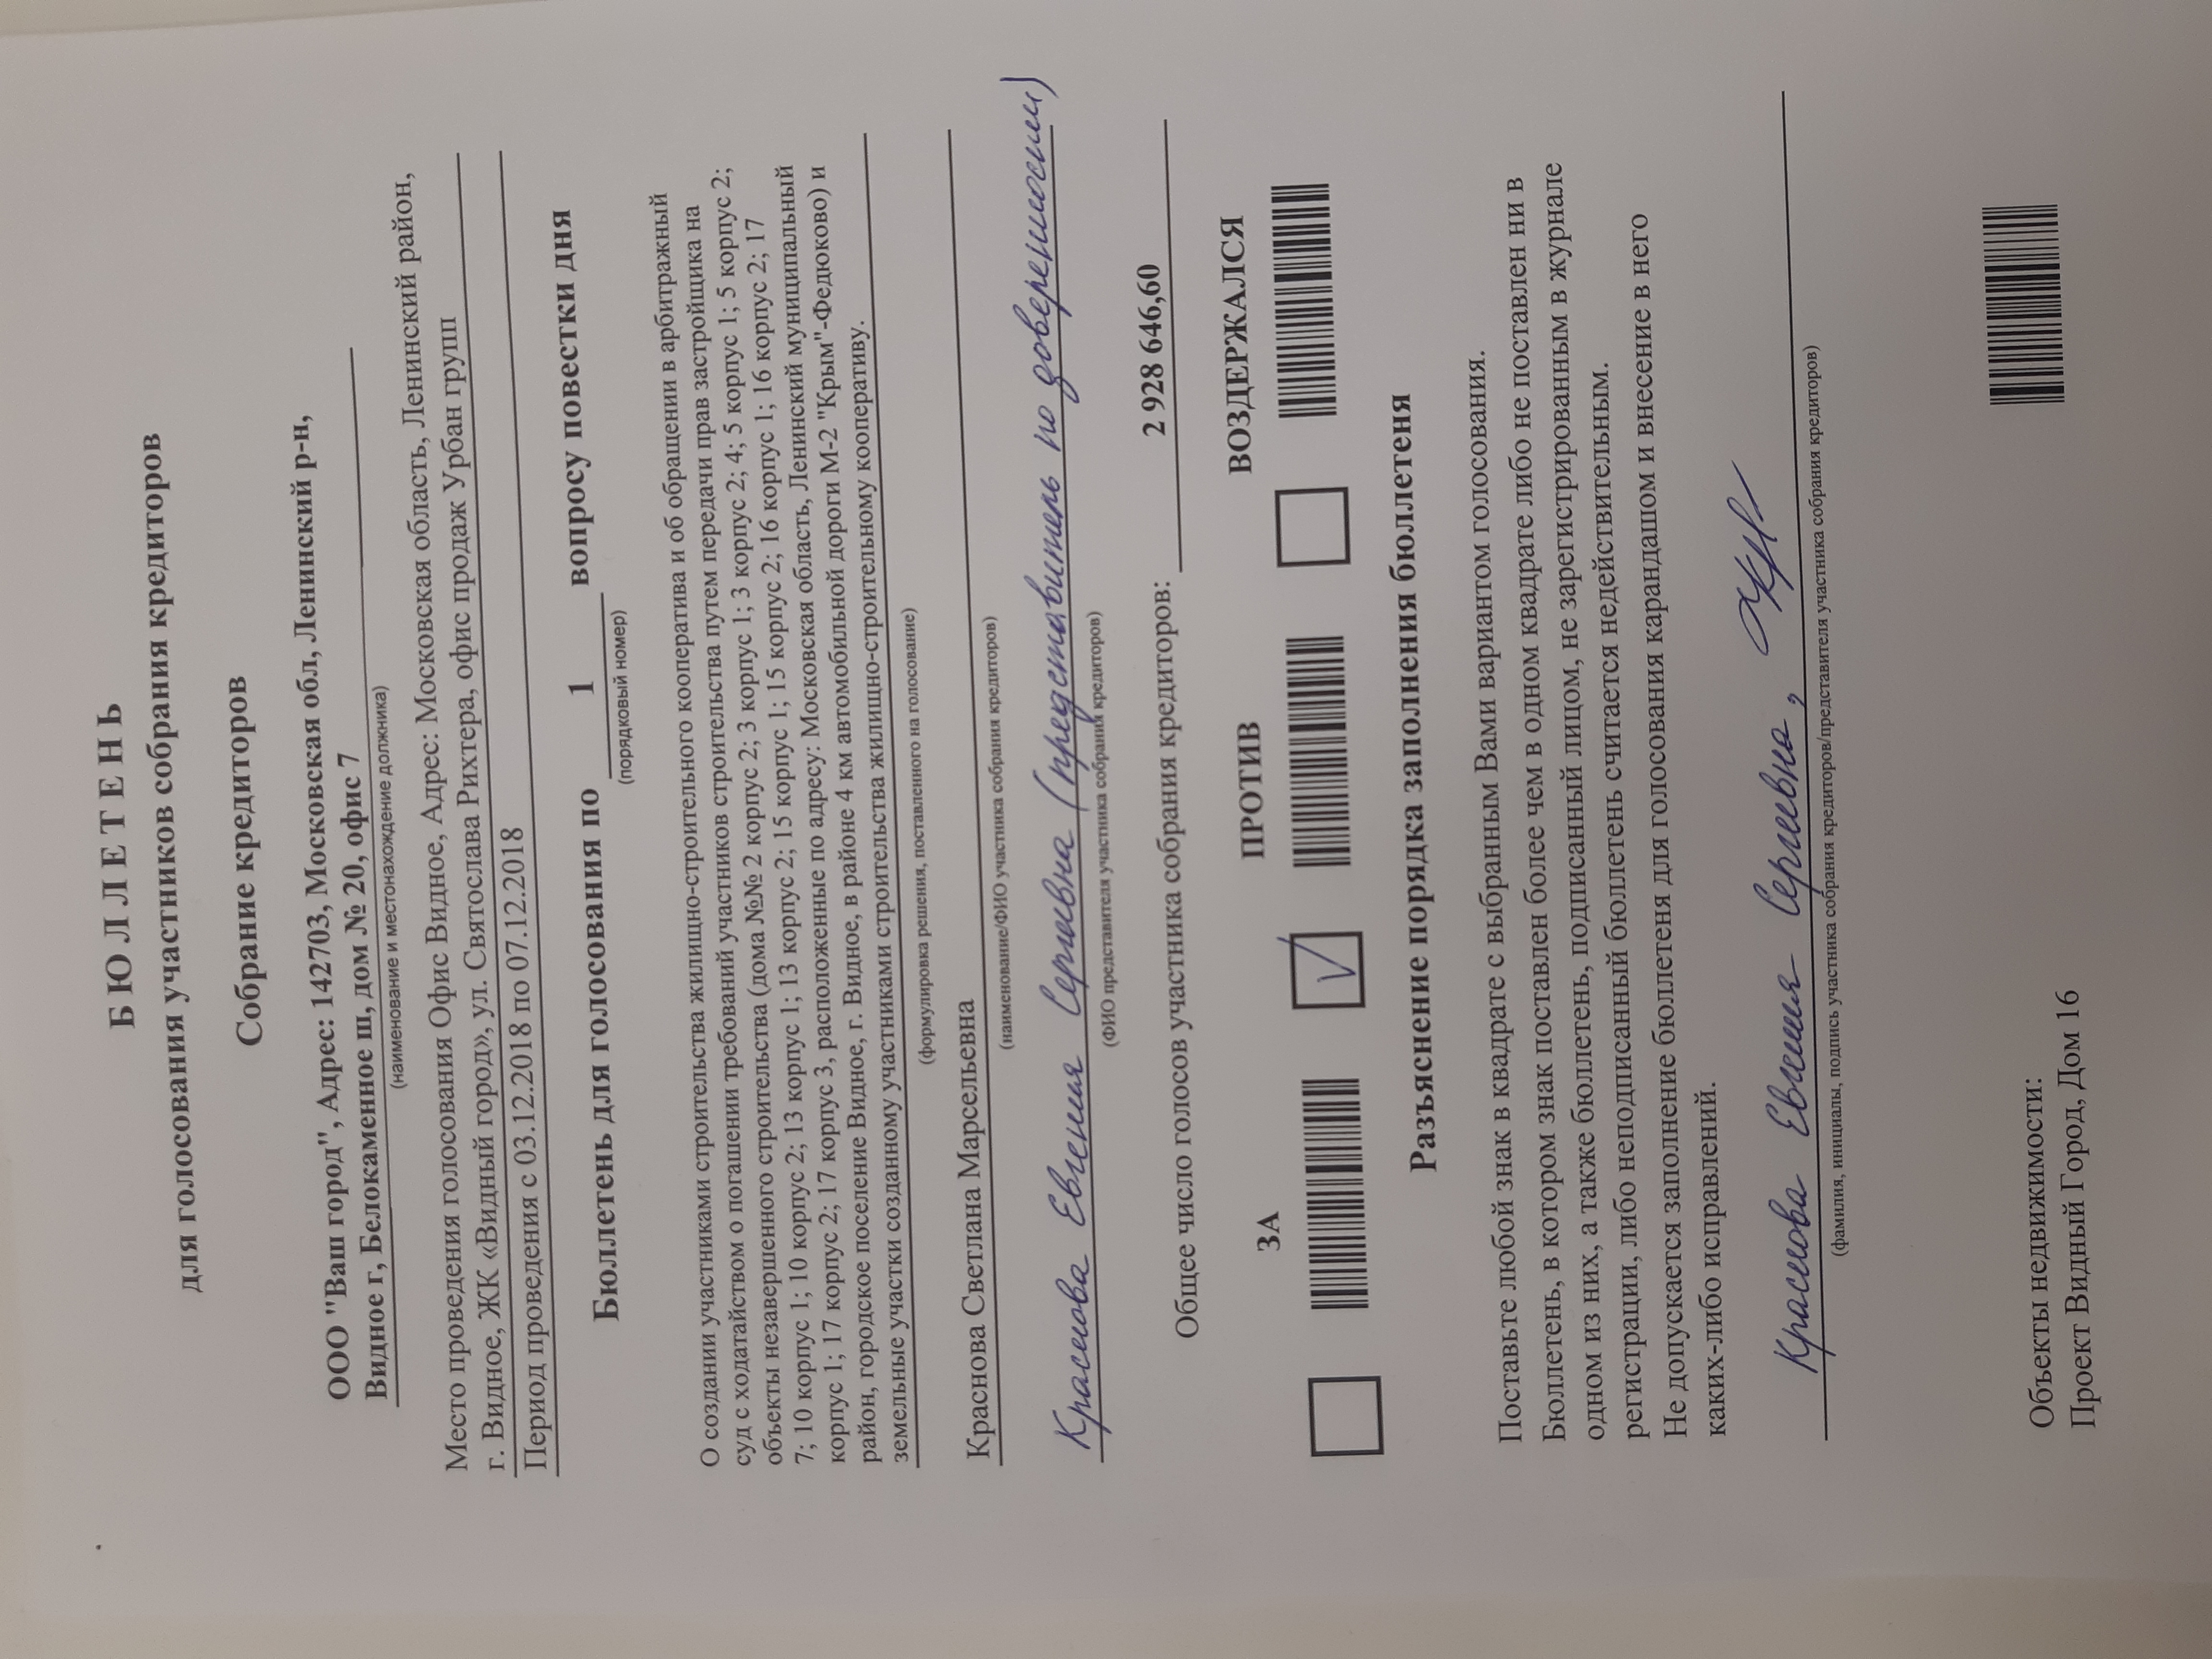 БЮЛЛЕТЕНЬ
для голосования участников собрания кредиторов
Собрание кредиторов
ООО "Ваш город", Адрес: 142703, Московская обл, Ленинский р-н,
Видное г, Белокаменное ш, дом № 20, офис 7
(наименование и местонахождение должника)
Место проведения голосования Офис Видное, Адрес: Московская область, Ленинский район,
г. Видное, ЖК «Видный город», ул. Святослава Рихтера, офис продаж Урбан групп
Период проведения с 03.12.2018 по 07.12.2018
Бюллетень для голосования по 1 вопросу повестки дня
(порядковый номер)
О создании участниками строительства жилищно-строительного кооператива и об обращении в арбитражный
суд с ходатайством о погашении требований участников строительства путем передачи прав застройщика на
объекты незавершенного строительства (дома №№ 2 корпус 2; 3 корпус 1; 3 корпус 2; 4; 5 корпус 1; 5 корпус 2;
7; 10 корпус 1; 10 корпус 2; 13 корпус 1; 13 корпус 2; 15 корпус 1; 15 корпус 2; 16 корпус 1; 16 корпус 2; 17
корпус 1; 17 корпус 2; 17 корпус 3, расположенные по адресу: Московская область, Ленинский муниципальный
район, городское поселение Видное, г. Видное, в районе 4 км автомобильной дороги М-2 "Крым"-Федюково) и
земельные участки созданному участниками строительства жилищно-строительному кооперативу.
(формулировка решения, поставленного на голосование)
Краснова Светлана Марсельевна
(наименование/ФИО участника собрания кредиторов)
Краснова Евгения Сергеевна (представитель по доверенности)
(ФИО представителя участника собрания кредиторов)
Общее число голосов участника собрания кредиторов: 2 928 646,60
ЗА ПРОТИВ ВОЗДЕРЖАЛСЯ
Разъяснение порядка заполнения бюллетеня
Поставьте любой знак в квадрате с выбранным Вами вариантом голосования.
Бюллетень, в котором знак поставлен более чем в одном квадрате либо не поставлен ни в
одном из них, а также бюллетень, подписанный лицом, не зарегистрированным в журнале
регистрации, либо неподписанный бюллетень считается недействительным.
Не допускается заполнение бюллетеня для голосования карандашом и внесение в него
каких-либо исправлений.
Краснова Евгения Сергеевна,
(фамилия, инициалы, подпись участника собрания кредиторов/представителя участника собрания кредиторов)
Объекты недвижимости:
Проект Видный Город, Дом 16